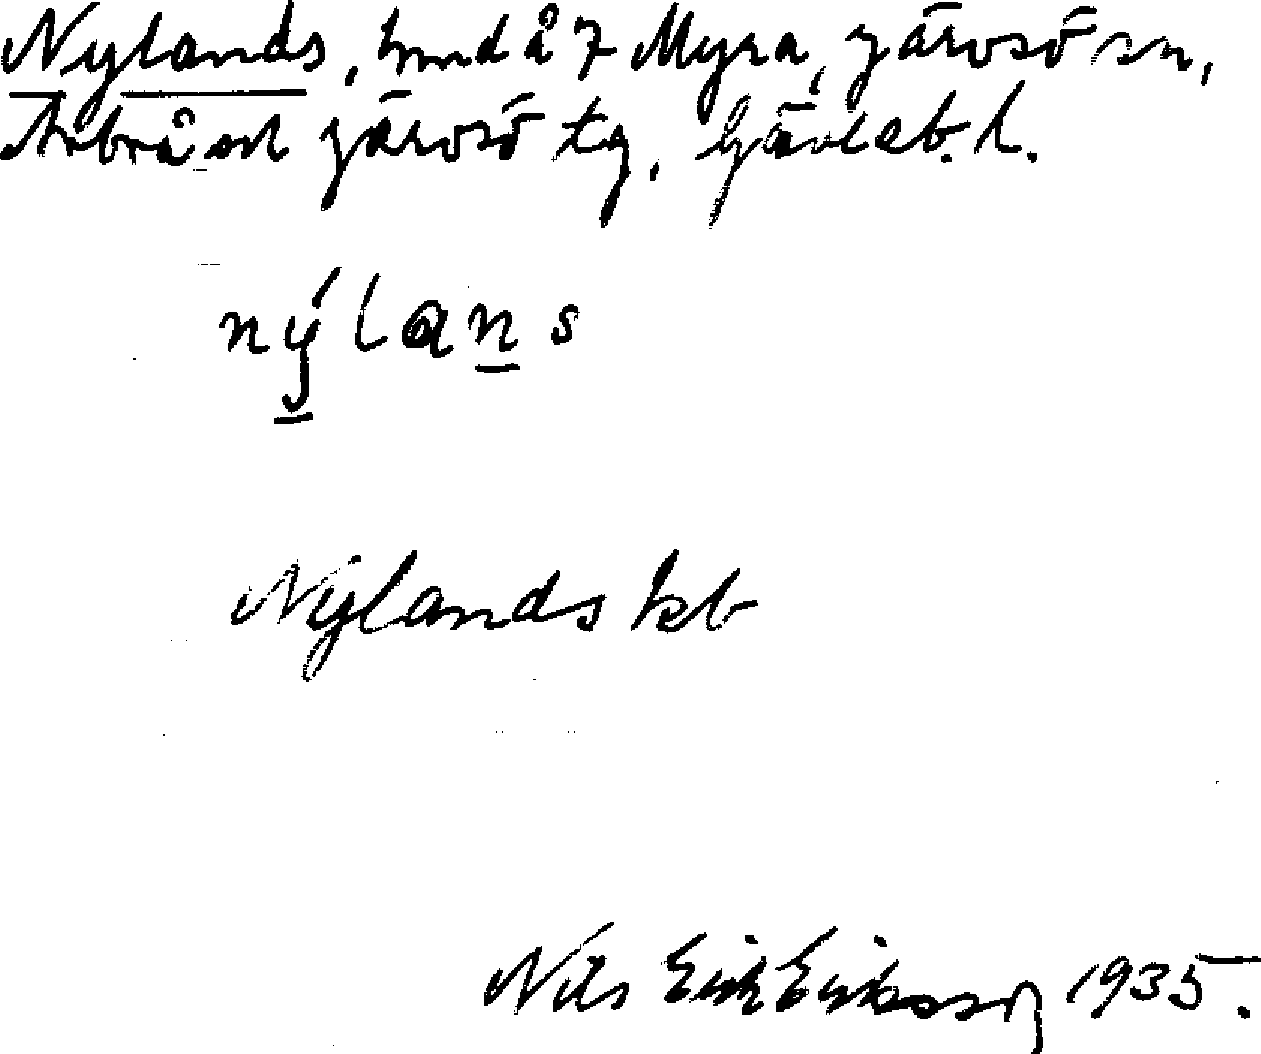 Nylands, hmd å 7 Myra, Järvsö sn,
Arbrå och Järvsö tg, Gävleb. l.
nýlans
Nylands kb
Nils Erik Eriksson 1935.